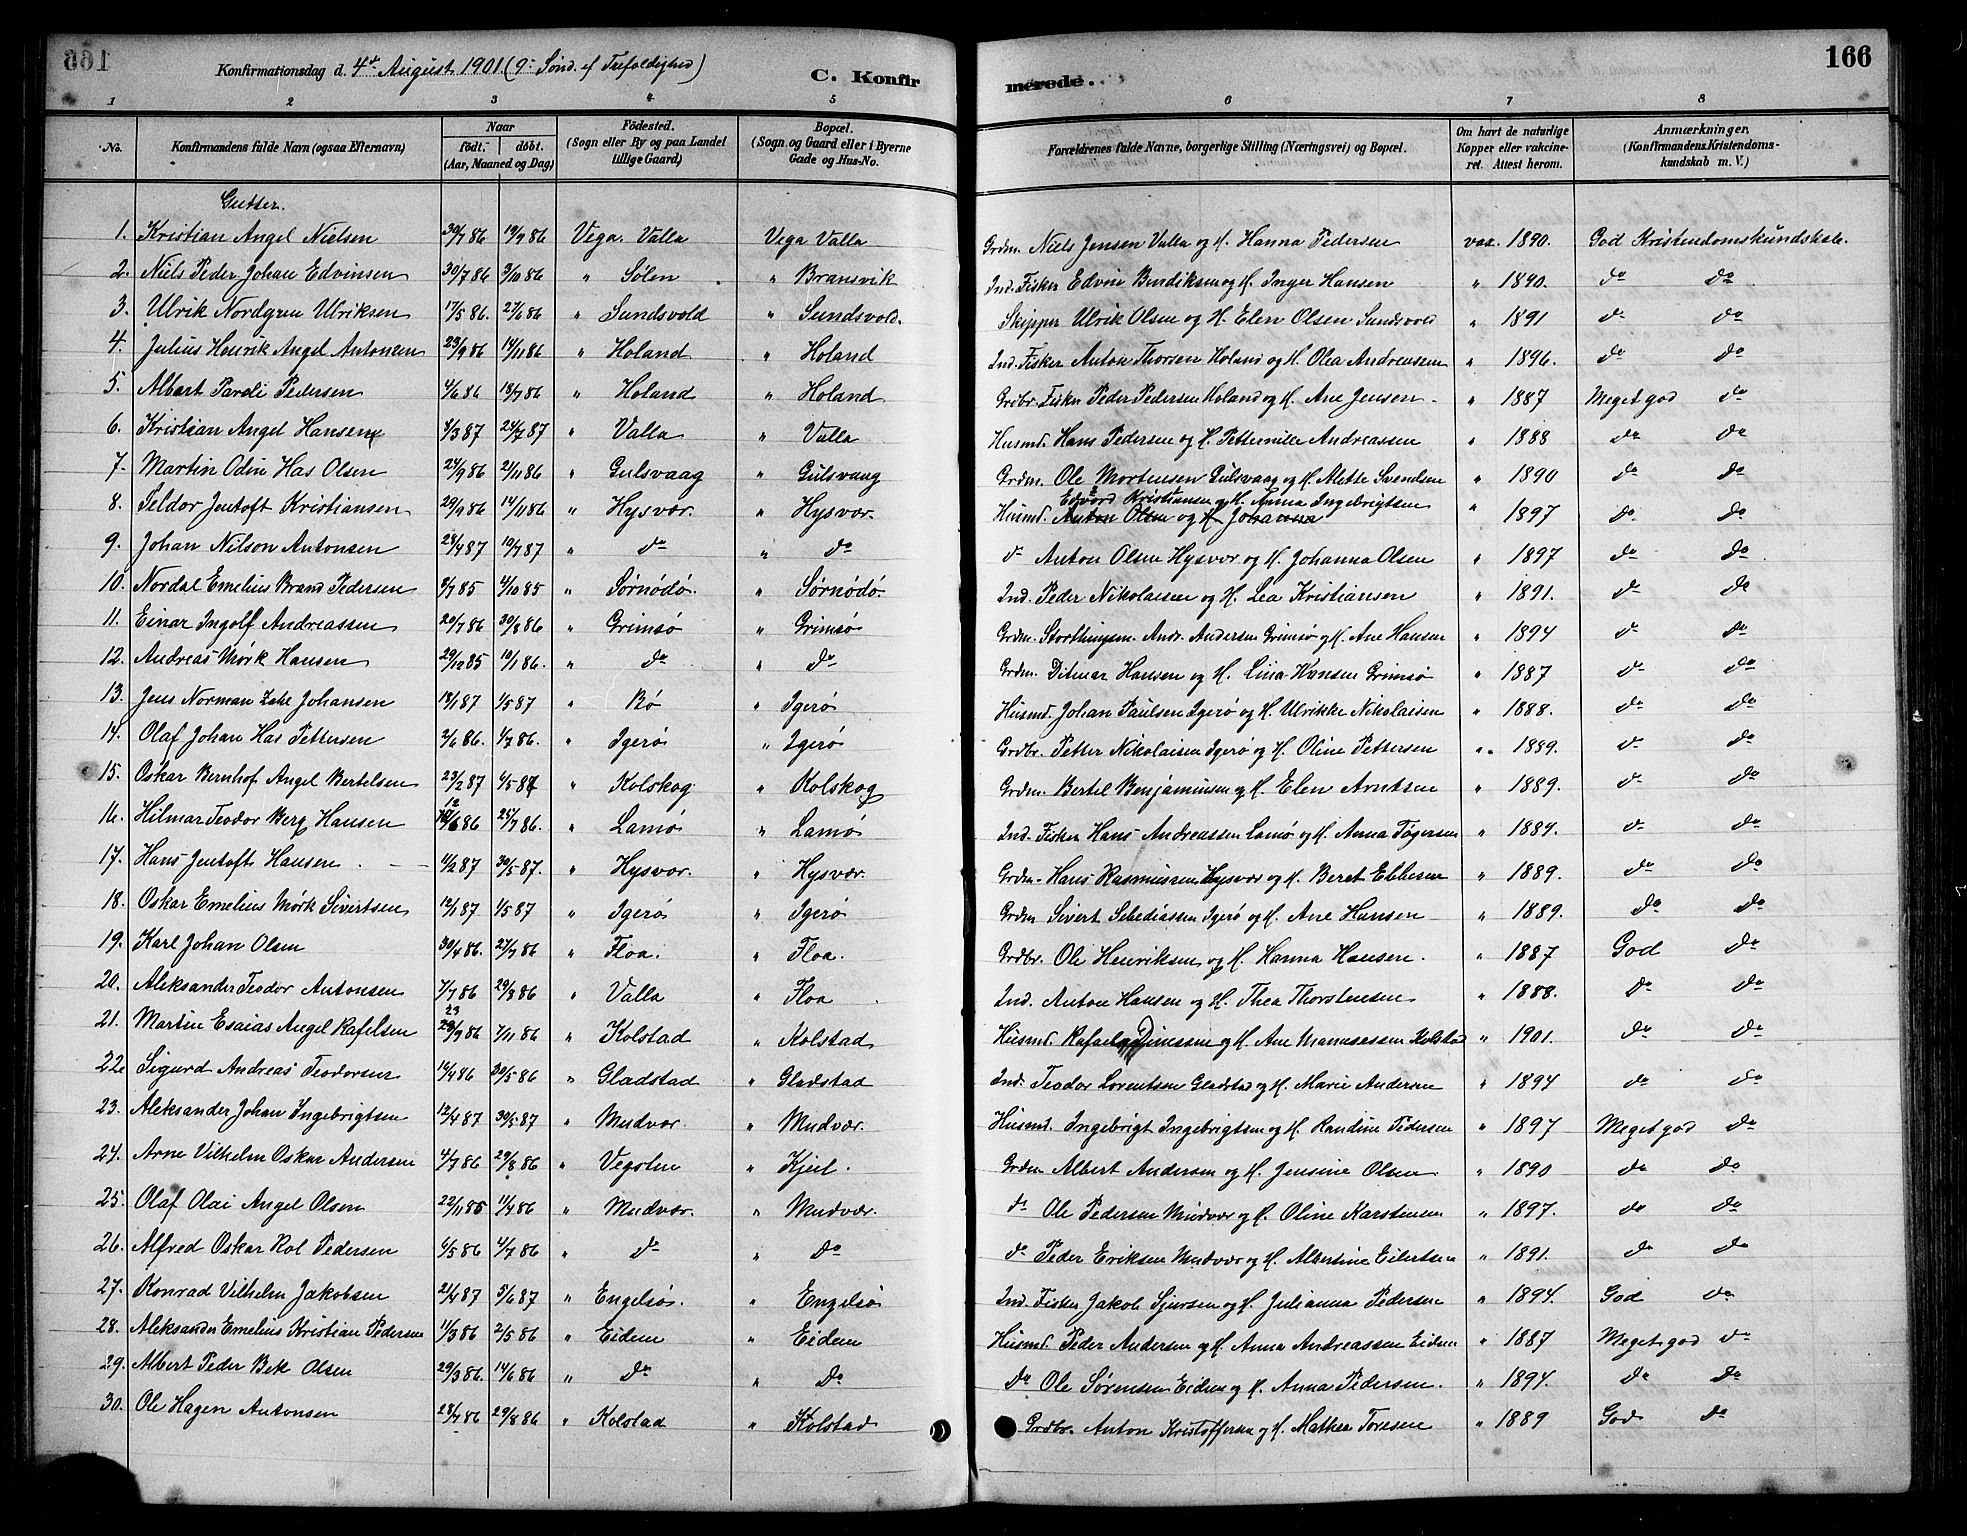 Konfirmationsdag d. 4de August 1901 (9. Sønd. ef Trefoldighed) C. Konfirmerede. 166
1 2 3 4 5 6 7 8
No. Konfirmandens fulde Navn (ogsaa Efternavn) Naar födt. döbt. (Aar, Maaned og Dag) Födested. (Sogn eller By og paa Landet tillige Gaard) Bopæl. (Sogn og Gaard eller i Byerne Gade og Hus-No. Forældrenes fulde Navne, borgerlige Stilling (Næringsvei) og Bopæl. Om havt de naturlige Kopper eller vakcineret. Attest herom. Anmærkninger. (Konfirmandens Kristendomskundskab m. V.)
Gutter.
1. Kristian Angel Nielsen 30/7 86 19/9 86 Vega. Valla Vega Valla Grdm. Niels Jensen Valla og H. Hanna Pedersen vax. 1890. God Kristendomskundskab.
2. Niels Peder Johan Edvinsen 30/7 86 3/10 86 " Sølen " Bransvik Ind. Fisker Edvin Bendiksen og H. Inger Hansen " 1890. do do
3. Ulrik Nordgren Ulriksen 17/5 86. 27/6 86 " Sundsvold " Sundsvold. Skipper Ulrik Olsen og H. Elen Olsen Sundsvold " 1891 do do
4. Julius Henrik Angel Antonsen 23/9 86 14/11 86 " Holand " Holand Ind. Fisker Anton Thorsen Holand og H. Olea Andreassen " 1896. do do
5. Albert Pareli Pedersen 4/6 86 18/7 86 " Holand " Holand Grdbr. Fisker Peder Pedersen Holand og H. Ane Jensen. " 1887 Meget god do
6. Kristian Angel Hansen 8/3 87 24/7 87 " Valla " Valla Husmd. Hans Pedersen og H. Pettermille Andreassen " 1888 do do
7. Martin Odin Has Olsen 24/9 86 21/11 86 " Gulsvaag " Gulsvaag Grdm. Ole Mortensen Gulsvaag og H. Alette Svendsen " 1890 do do
8. Teldor Jentoft Kristiansen 29/9 86 14/11 86 " Hysvær. " Hysvær. Husmd. Edvard Kristiansen og H. Anna Ingebrigtsen Anton Olsen og H. Johanna " 1897 do do
9. Johan Nilson Antonsen 28/4 87 10/7 87 " do " do do Anton Olsen Hysvær og H. Johanna Olsen " 1897 do do
10. Nordal Emelius Brand Pedersen 8/7 85 4/10 85 " Sørnødø. " Sørnødø. Ind. Peder Nikolaisen og H. Lea Kristiansen " 1891. do do
11. Einar Ingolf Andreassen 20/7 86 30/8 86 " Grimsø " Grimsø Grdm. Storthingsm. Andr. Andersen Grimsø og H. Ane Hansen " 1894 do do
12. Andreas Mørk Hansen 29/10 85 10/1 86. " do " do Grdm. Ditmar Hansen og H. Lina Hansen Grimsø " 1887 do do
13. Jens Norman Zahl Johansen 13/1 87 1/5 87 " Bø " Igerø Husmd. Johan Paulsen Igerø og H. Ulrikke Nikolaisen " 1888. do do
14. Olaf Johan Has Pettersen 2/6 86. 4/7 86. " Igerø " Igerø Grdbr. Petter Nikolaisen Igerø og H. Oline Pettersen " 1889. do do
15. Oskar Bernhof Angel Bertelsen 23/2 87 4/5 87 " Kolskog " Kolskog Grdm. Bertel Benjaminsen og H. Elen Arntsen " 1889. do do
16. Hilmar Teodor Berg Hansen 12/6 86 25/7 86. " Lamø " Lamø Ind. Fisker Hans Andreassen Lamø og H. Anna Tøgersen " 1884. do do
17. Hans Jentoft Hansen 4/2 87 30/5 87. " Hysvær. " Hysvær. Grdm. Hans Rasmussen Hysvær og H. Beret Ebbesen " 1889. do do
18. Oskar Emelius Mørk Sivertsen 12/1 87 1/5 87 " Igerø " Igerø Grdm Sivert Sebediassen Igerø og H. Ane Hansen " 1889. do do
19. Karl Johan Olsen 30/4 86. 27/7 86 " Floa. " Floa. Grdbr. Ole Henriksen og H. Hanna Hansen. " 1887 God do
20. Aleksander Teodor Antonsen 7/7 86 29/8 86 " Valla " Floa Ind. Anton Hansen og H. Thea Thorstensen " 1888. do do
21. Martin Esaias Angel Rafelsen 23/9 86 7/11 86 " Kolstad " Kolstad Husmd. Rafael Dinessen og H. Ane Mannsessen Kolstad " 1901. do do
22. Sigurd Andreas Teodorsen 16/4 86 30/5 86 " Gladstad " Gladstad Ind. Teodor Lorentsen Gladstad og H. Marie Andersen " 1894 do do
23. Aleksander Johan Ingebrigtsen 12/4 87 30/5 87 " Mudvær. " Mudvær. Husmd. Ingebrigt Ingebrigtsen og H. Randine Pedersen " 1897 Meget god do
24. Arne Vilhelm Oskar Andersen 4/7 86 29/8 86 " Vegolm " Kjul. Grdm Albert Andersen og H. Jensine Olsen " 1890 do do
25. Olaf Olai Angel Olsen 22/11 85 11/4 86 " Mudvær. " Mudvær. do Ole Pedersen Mudvær og H. Oline Karstensen " 1897. do do
26. Alfred Oskar Rol Pedersen 6/5 86 4/7 86 " do " do do Peder Eriksen Mudvær og H. Albertine Eilertsen " 1891. do do
27. Konrad Vilhelm Jakobsen 21/4 87 5/6 87 " Engelsø. " Engelsø Ind. Fisker Jakob Sjursen og H. Julianna Pedersen " 1894. God do
28. Aleksander Emelius Kristian Pedersen 11/3 86 2/5 86 " Eidem " Eidem Husmd. Peder Andersen og H. Anna Andreassen Eidem " 1887 Meget god do
29. Albert Peder Bek Olsen 29/3 86. 14/6 86 " do " do do Ole Sørensen Eidem og H. Anna Pedersen. " 1894. do do
30. Ole Hagen Antonsen 28/7 86 29/8 86 " Kolstad " Kolstad Grdbr. Anton Kristoffersen og H. Mathea Toresen " 1889 God do